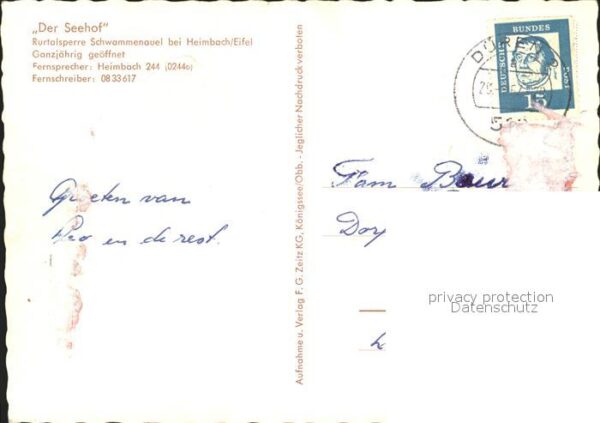 „Der Seehof"
Rurtalsperre Schwammenauel bei Heimbach/Eifel
Ganzjährig geöffnet
Fernsprecher: Heimbach 244 (02446)
Fernschreiber: 08 33 617
Groeten van
en de rest.
Aufnahme u. Verlag F. G. Zeitz KG, Königssee/Obb. - Jeglicher Nachdruck verboten
DEUTSCHE BUNDESPOST
15
DÜREN
Fam
privacy protection
Datenschutz